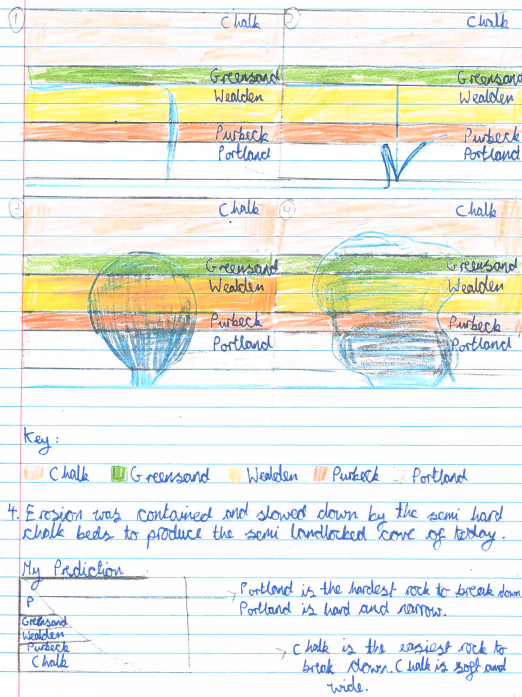 1
Chalk
Greensand
Wealden
Purbeck
Portland
2
Chalk
Greensand
Wealden
Purbeck
Portland
3
Chalk
Greensand
Wealden
Purbeck
Portland
4
Chalk
Greensand
Wealden
Purbeck
Portland
Key:
Chalk Greensand Wealden Purbeck Portland
4. Erosion was contained and slowed down by the semi hard
chalk beds to produce the semi landlocked cove of today.
My Prediction
P
Greensand
Wealden
Purbeck
Chalk
Portland is the hardest rock to break down.
Portland is hard and narrow.
Chalk is the easiest rock to
break down. Chalk is soft and
wide.